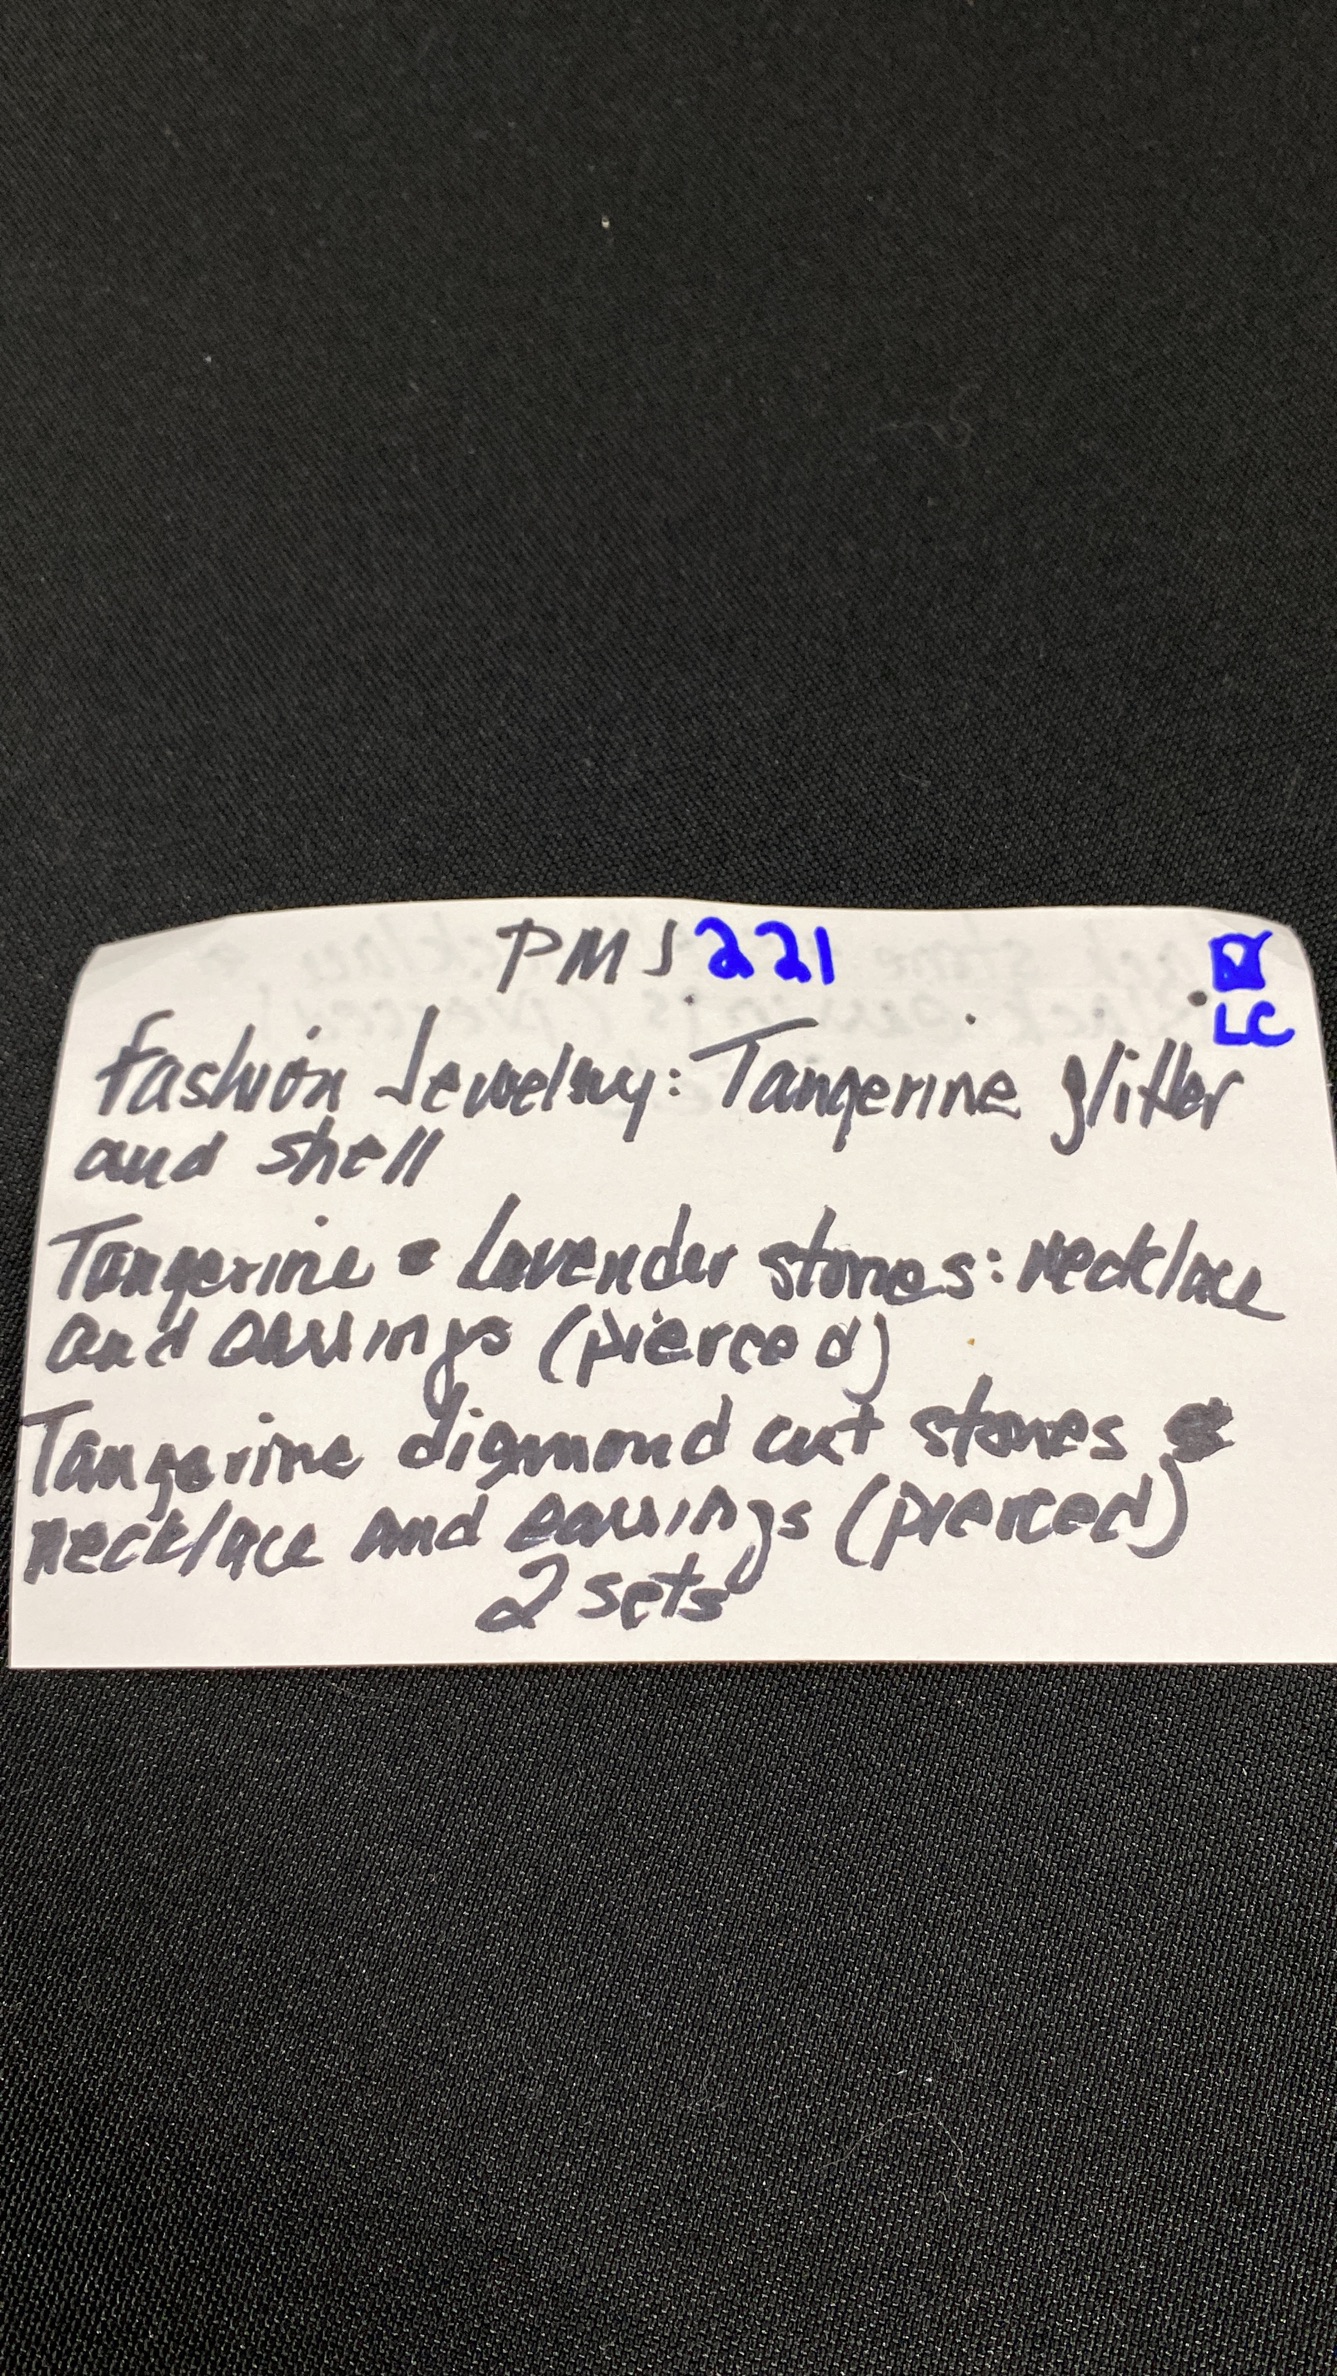 PMJ 221
LC
Fashion Jewelry: Tangerine glitter
and shell
Tangerine • Lavender stones: necklace
and earrings (pierced)
Tangerine diamond cut stones
necklace and earrings (pierced)
2 sets